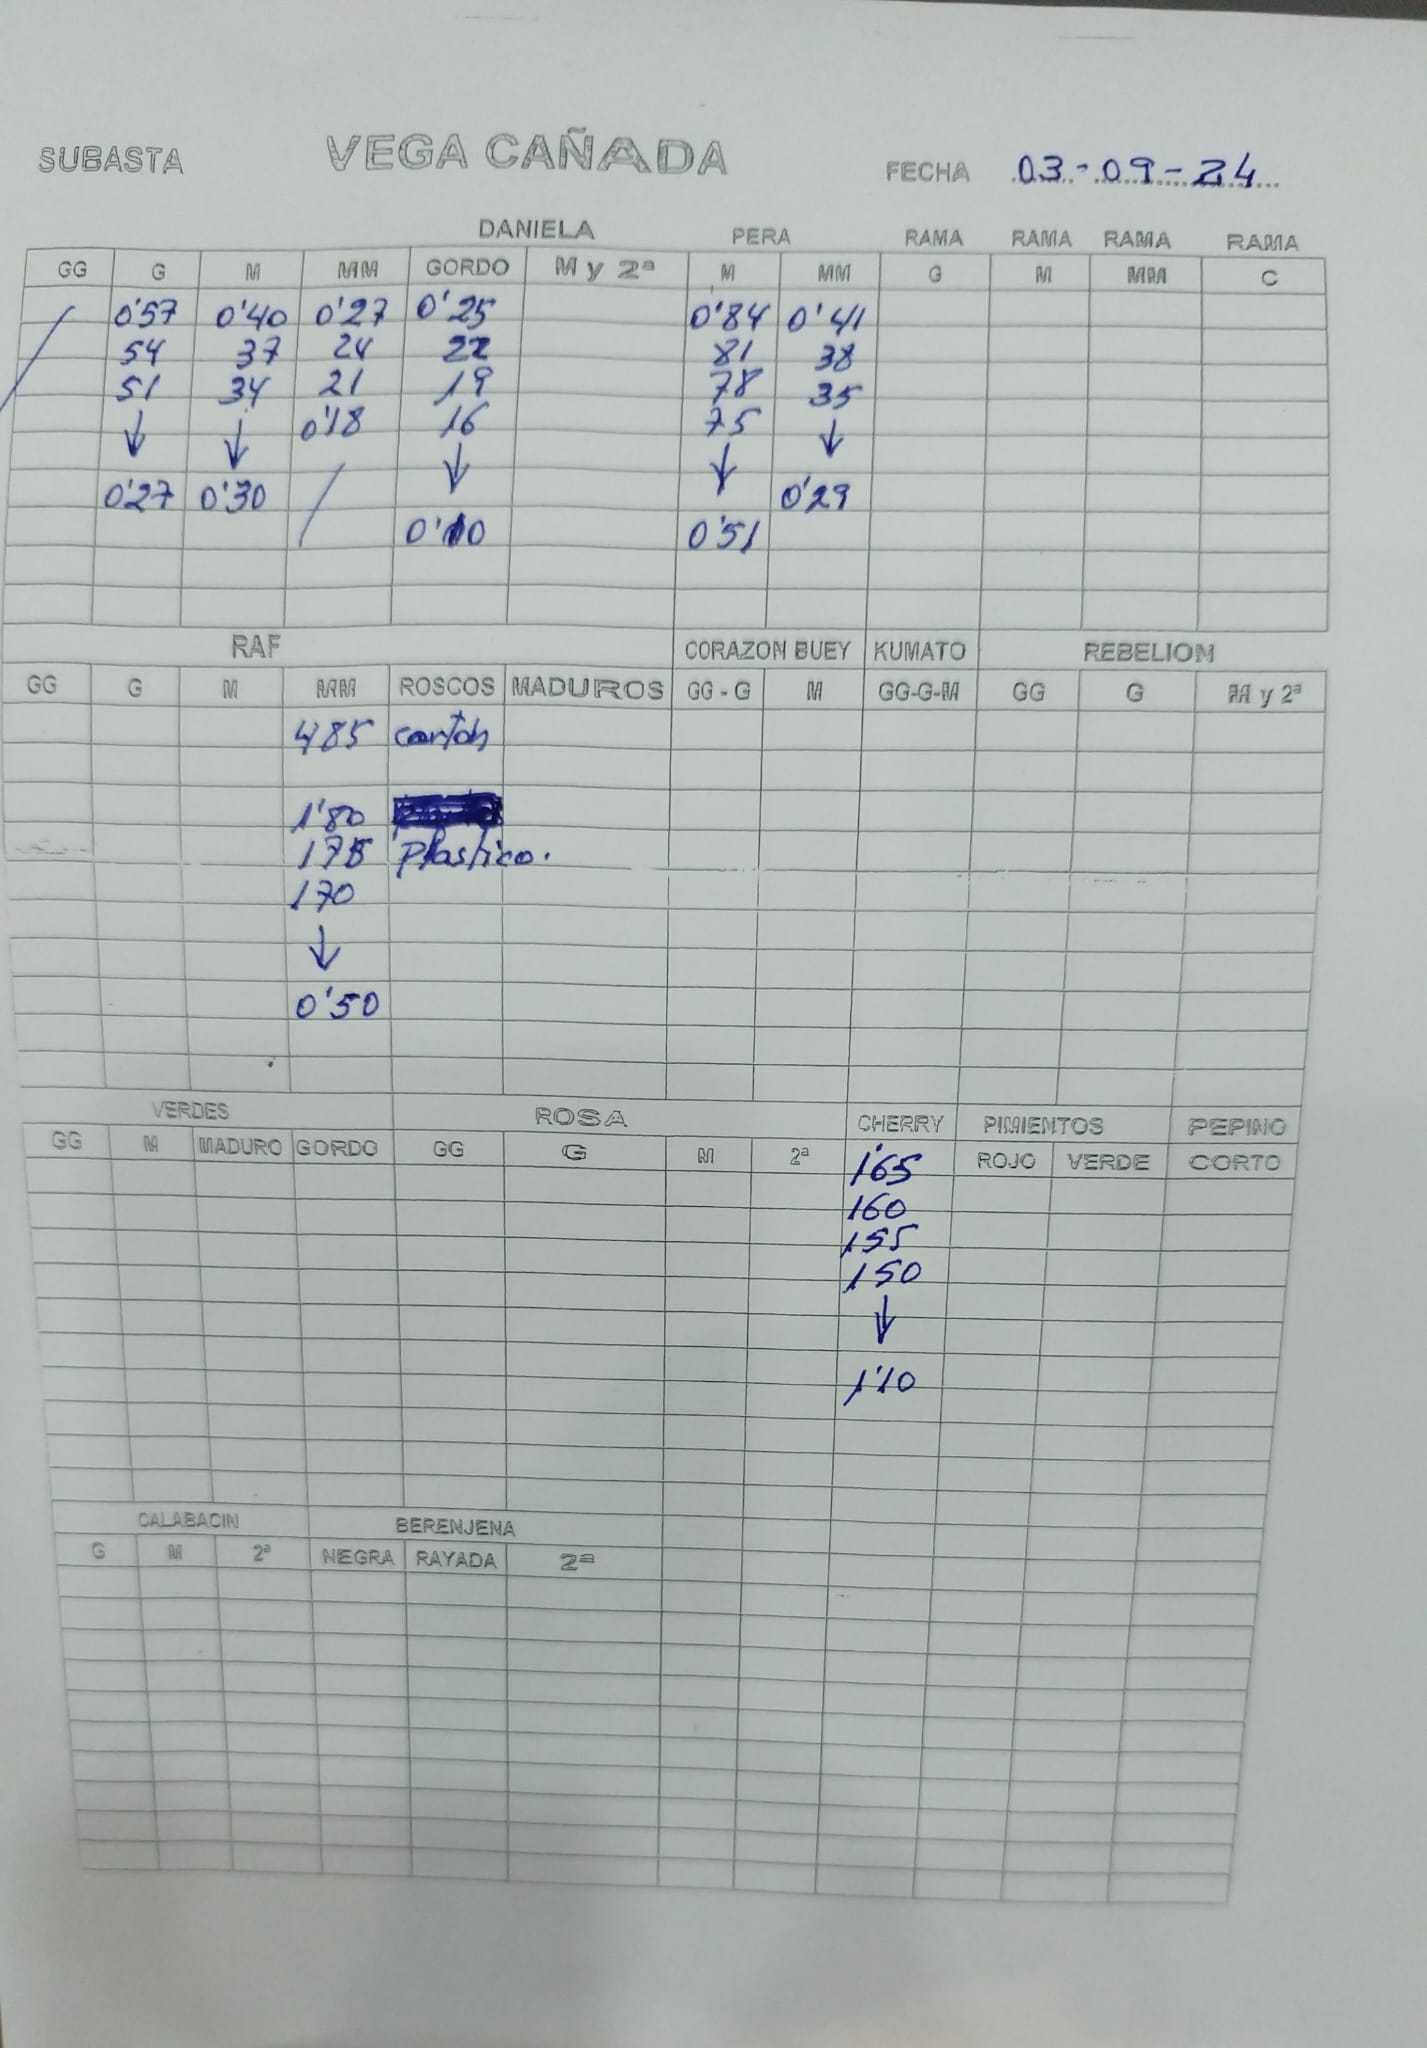 SUBASTA VEGA CAÑADA FECHA 03-09-24
DANIELA PERA RAMA RAMA RAMA RAMA
GG G M MM GORDO M y 2ª M MM G M MM C
0'57 0'40 0'27 0'25 0'84 0'41
54 37 24 22 81 38
51 34 21 19 78 35
↓ ↓ 0'18 16 75 ↓
0'27 0'30 / ↓ ↓ 0'29
0'10 0'51
RAF CORAZON BUEY KUMATO REBELION
GG G M MM ROSCOS MADUROS GG - G M GG-G-M GG G M y 2ª
485 cartón
1'80
175 Plastico.
170
↓
0'50
VERDES ROSA CHERRY PIMIENTOS PEPINO
GG M MADURO GORDO GG G M 2ª 1'65 ROJO VERDE CORTO
160
155
150
↓
1'10
CALABACIN BERENJENA
G M 2ª NEGRA RAYADA 2ª